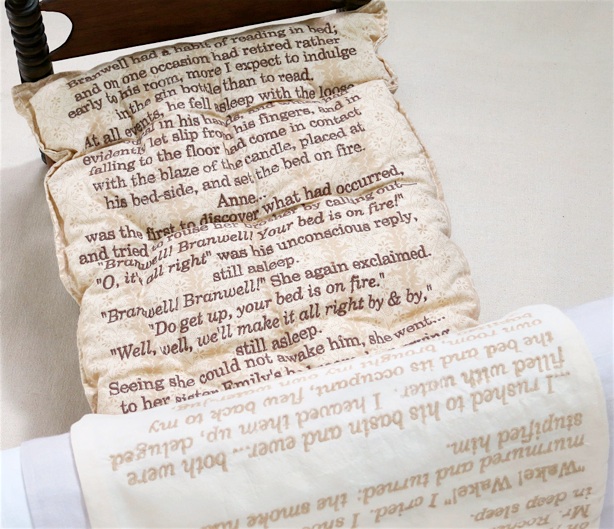 Branwell had a habit of reading in bed;
and on one occasion had retired rather
early to his room, more I expect to indulge
in the gin bottle than to read.
At all events, he fell asleep with the loose
in his hands, and in
evidently let slip from his fingers,
falling to the floor had come in contact
with the blaze of the candle, placed at
his bed-side, and set the bed on fire.
Anne...
was the first to discover what had occurred,
and tried to rouse her brother by calling out
"Branwell! Branwell! Your bed is on fire!"
"O, it's all right" was his unconscious reply,
still asleep.
"Branwell! Branwell!" She again exclaimed.
"Do get up, your bed is on fire."
"Well, well, we'll make it all right by & by,"
still asleep.
Seeing she could not awake him, she went...
to her sister Emily's
in deep sleep.
"Wake! Wake!" I cried. I
murmured and turned: the smoke had
stupified him.
...I rushed to his basin and ewer... both were
filled with water. I heaved them up, deluged
the bed and its occupant, flew back to my
own room, brought my own water-jug,